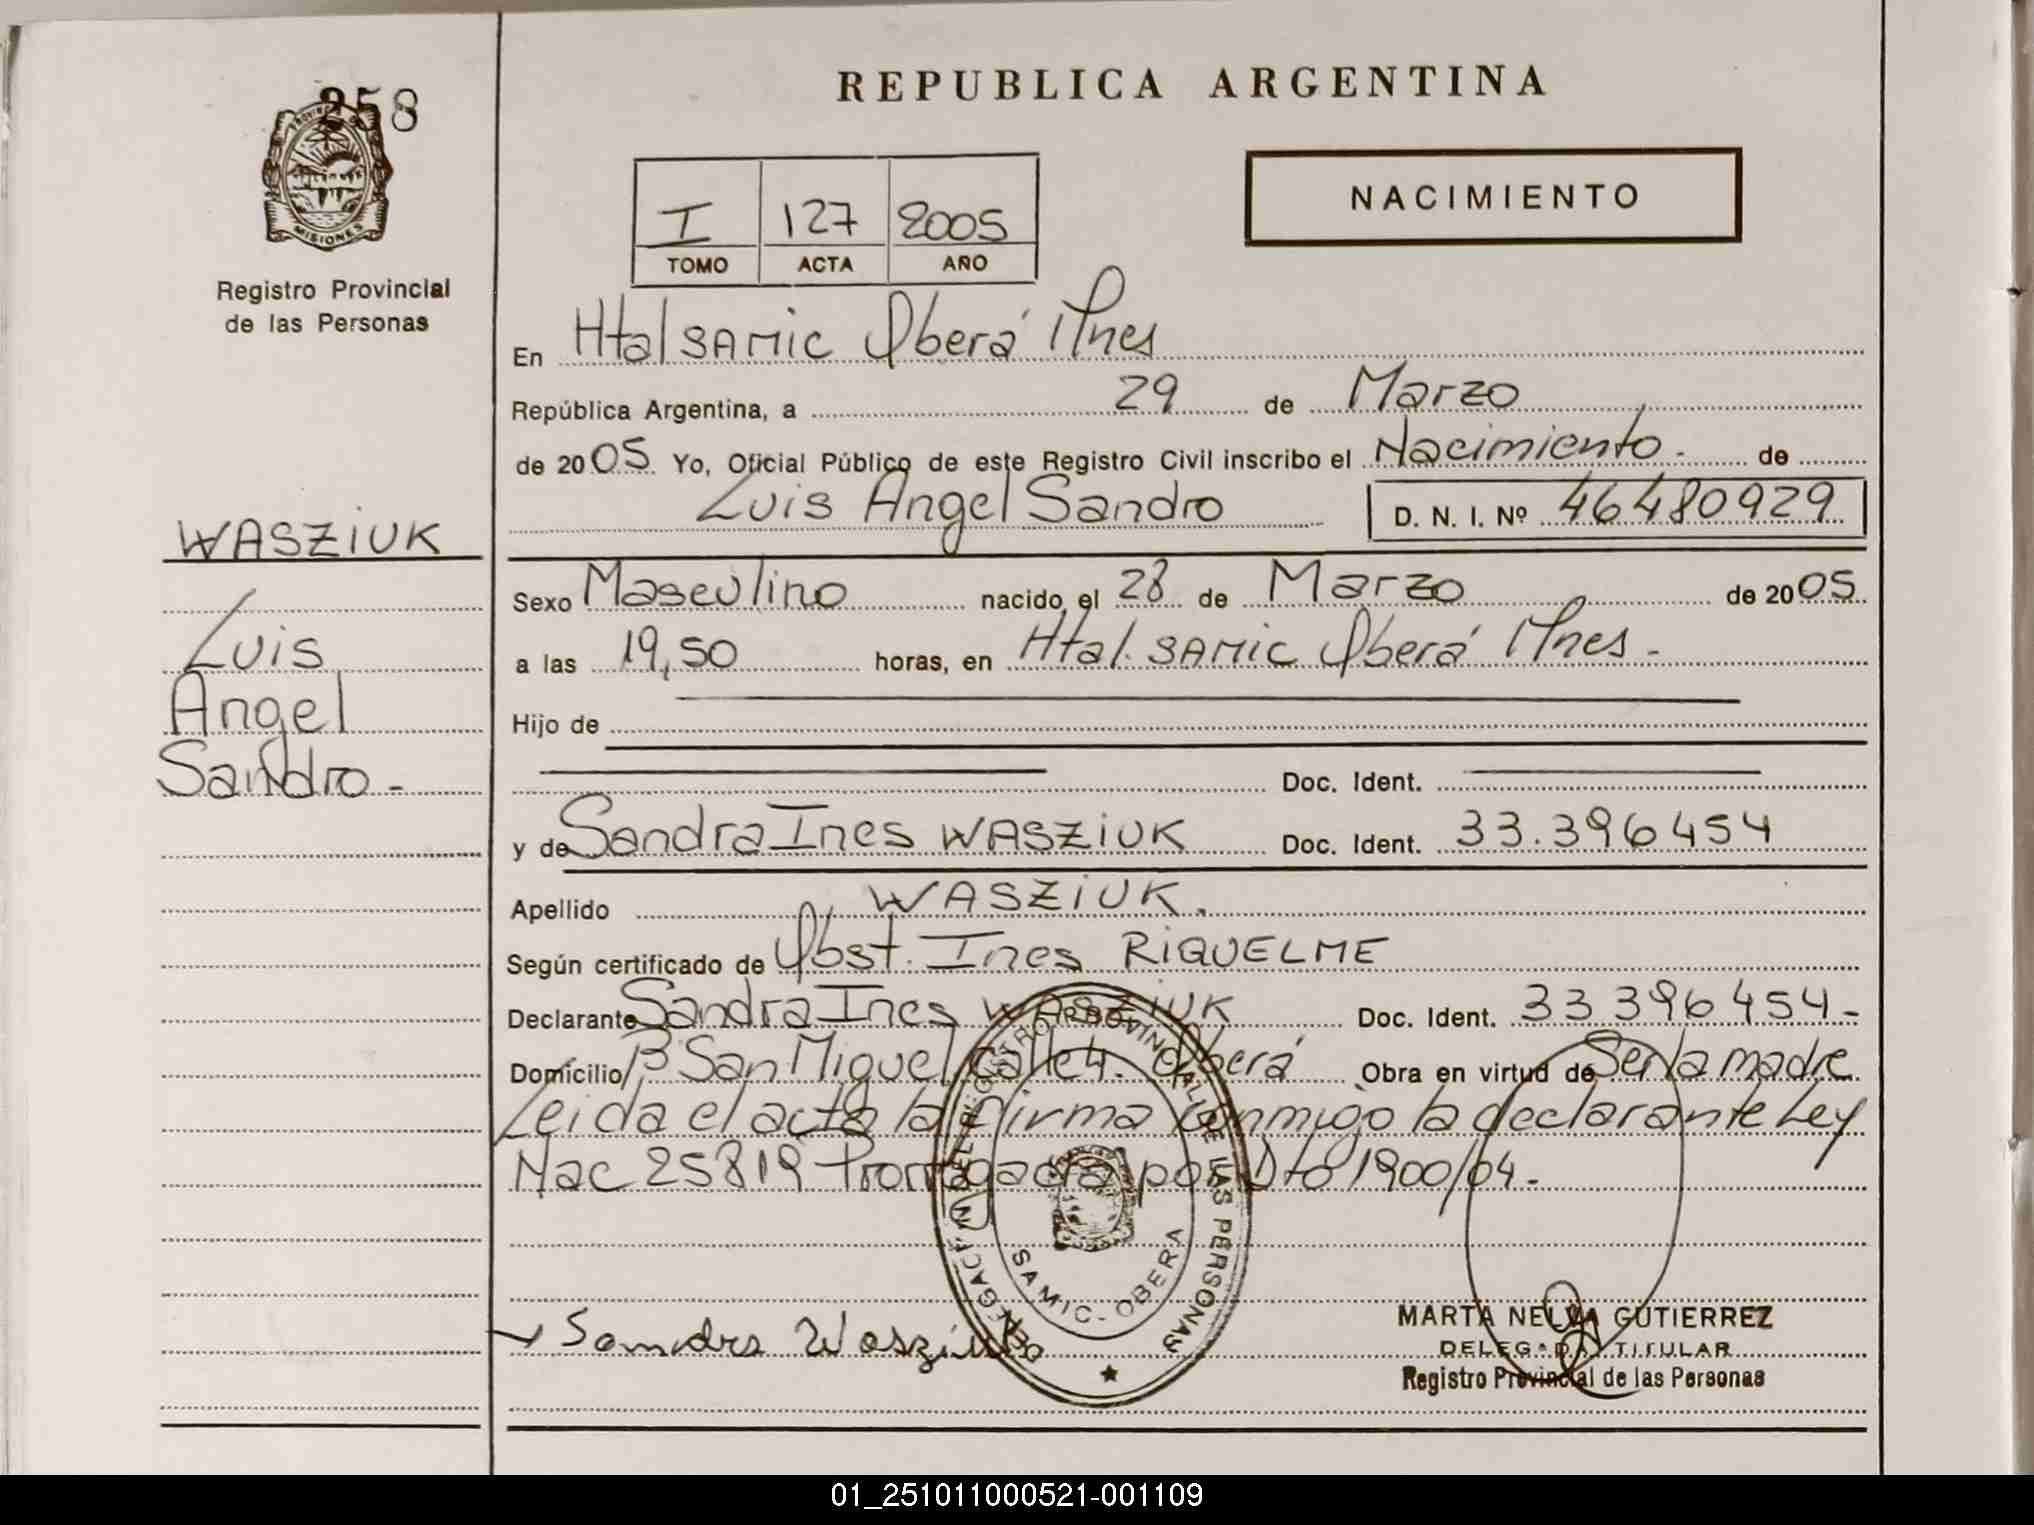 358
MISIONES
Registro Provincial
de las Personas
WASZIUK
Luis
Angel
Sandro -
REPUBLICA ARGENTINA
NACIMIENTO
I 127 2005
TOMO ACTA AÑO
En Htal SAMIC Oberá Mnes
República Argentina, a 29 de Marzo
de 2005 Yo, Oficial Público de este Registro Civil inscribo el Nacimiento - de
Luis Angel Sandro D. N. I. Nº 46480929
Sexo Masculino nacido el 28 de Marzo de 2005
a las 19,50 horas, en Htal. SAMIC Oberá Mnes -
Hijo de
Doc. Ident.
y de Sandra Ines WASZIUK Doc. Ident. 33.396454
Apellido WASZIUK.
Según certificado de Obst. Ines RIQUELME
Declarante Sandra Ines WASZIUK Doc. Ident. 33 396 454 -
Domicilio B San Miguel calle 4. Oberá Obra en virtud de Ser la madre
Leida el acta la firma conmigo la declarante Ley
Nac 25819 Prorrogada por Dto 1900/04 -
DELEGACION DEL REGISTRO PROVINCIAL DE LAS PERSONAS
SAMIC - OBERA
Sandra Wasziuk
MARTA NELVA GUTIERREZ
DELEGADA TITULAR
Registro Provincial de las Personas
01_251011000521-001109